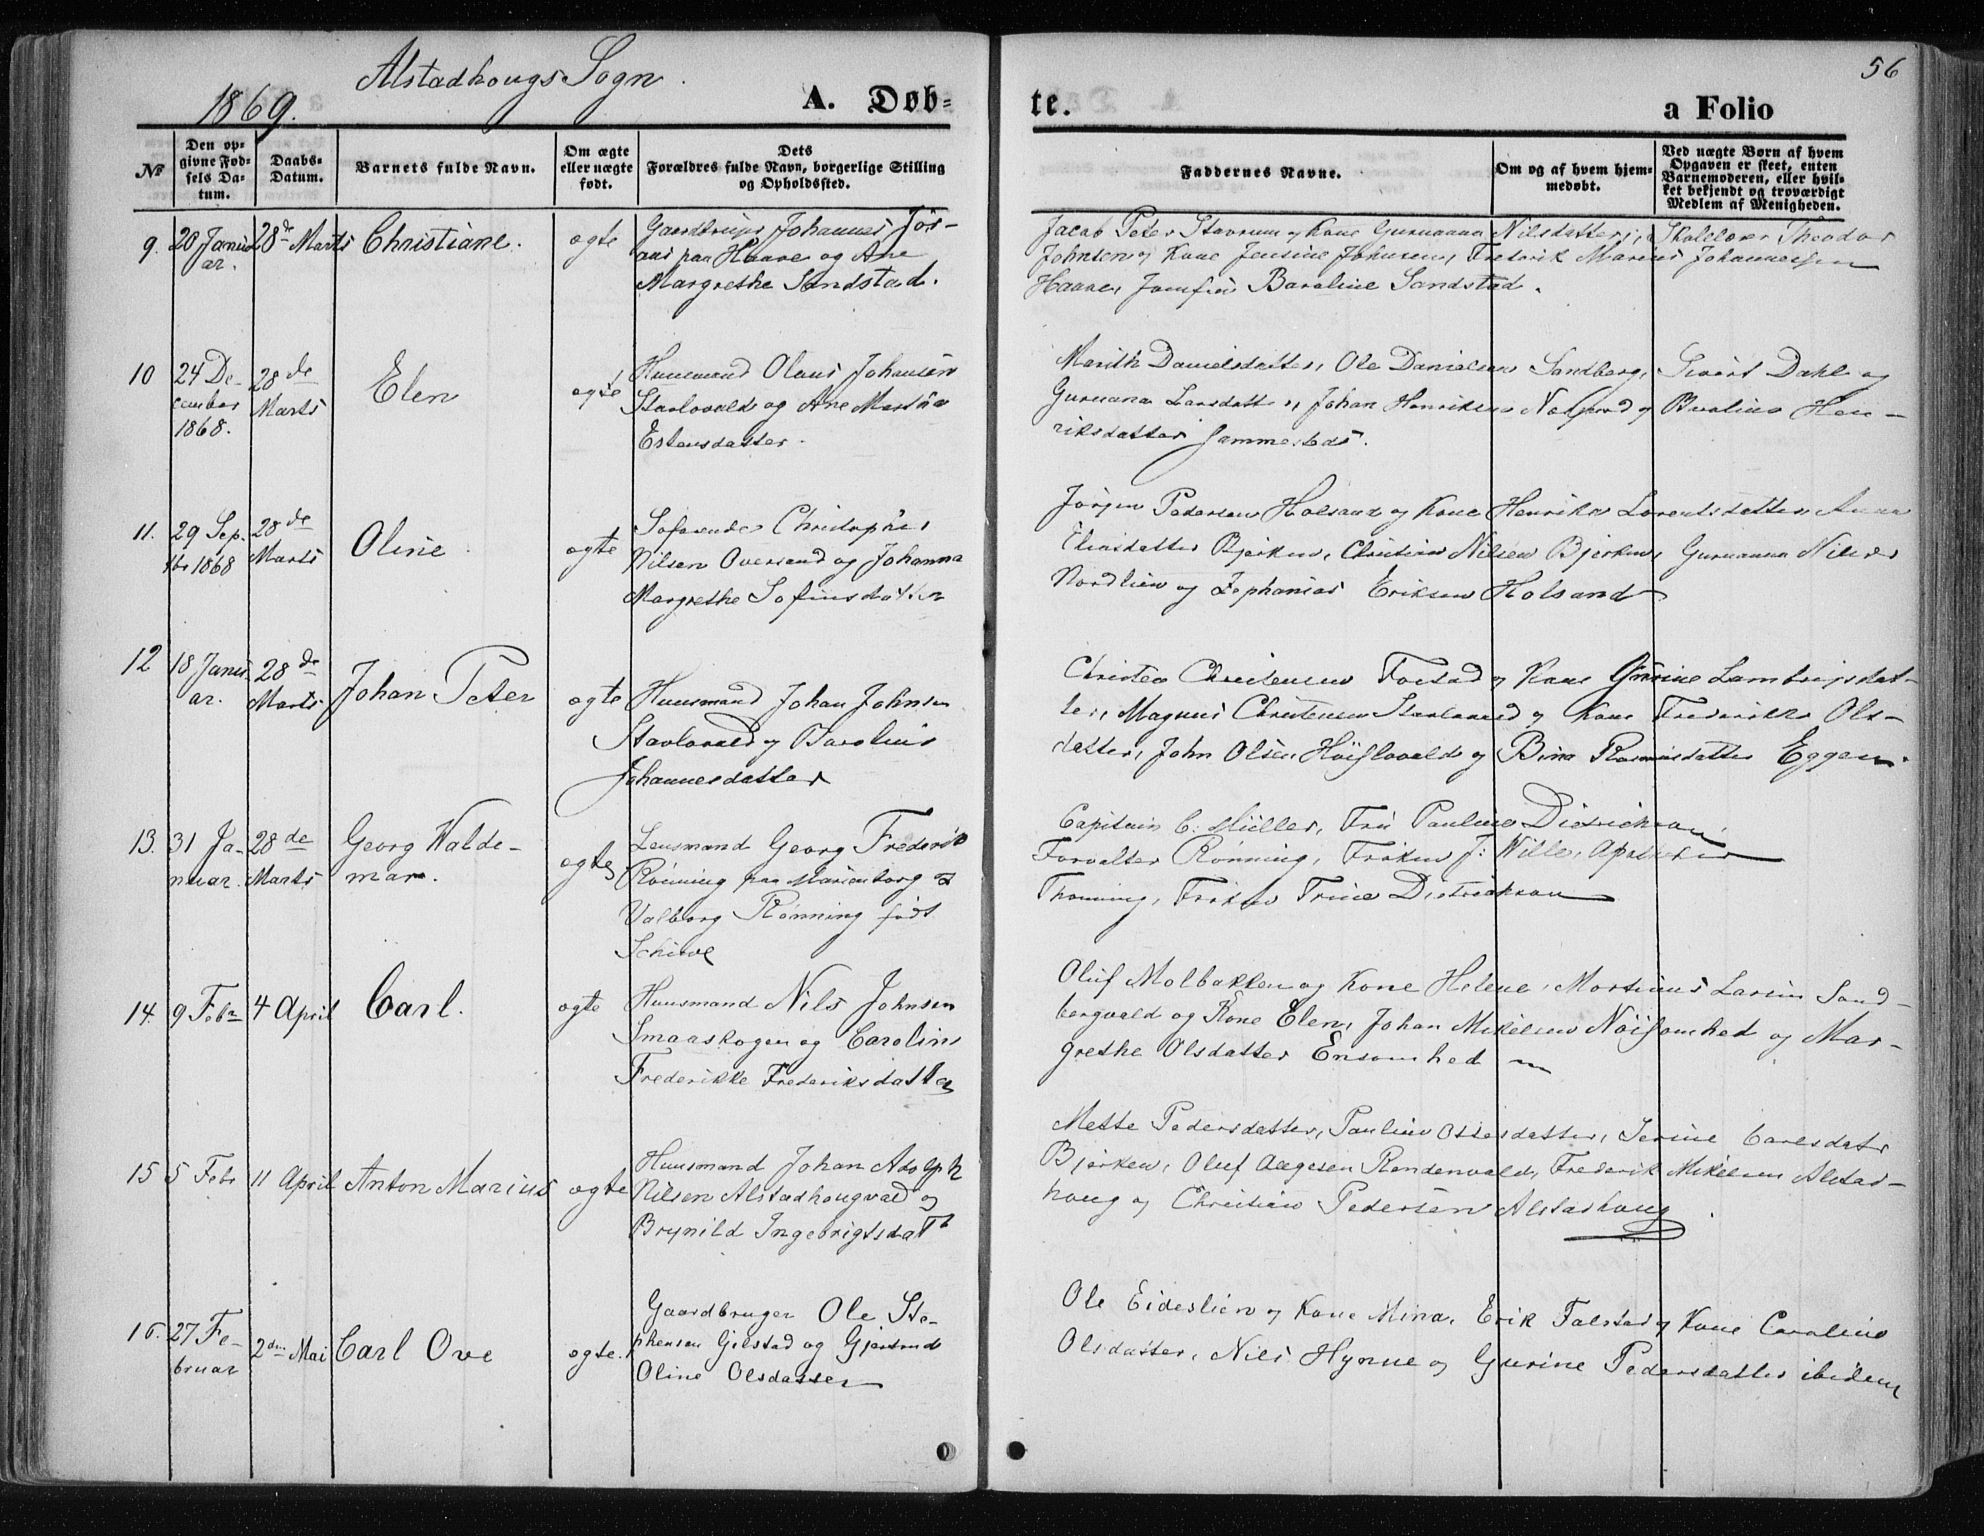 Alstadhougs Sogn.
1869.
A. Døb=
te.
a Folio
56
№
Den op=
givne Fød=
sels Da=
tum.
Daabs=
Datum.
Barnets fulde Navn.
Om ægte
eller uægte
født.
Dets
Forældres fulde Navn, borgerlige Stilling
og Opholdssted.
Faddernes Navne.
Om og af hvem hjem=
medøbt.
Ved uægte Børn af hvem
Opgaven er skeet, enten
Barnemoderen, eller hvil=
ket bekjendt og troværdigt
Medlem af Menigheden.
9. 20 Janu
ar.
28de Marts
Christiane.
ogte
Johannes
paa Haave og Ane
Margrethe Sandstad.
Jacob Peter Stavrum og Kone Gurianna Nilsdatter, Theodor
Johnsen og Kone Jensine Johnsen, Fredrik Marius Johannessen
Haave, Jomfru Baroline Sandstad.
10
24 De-
cember
1868.
28de
Marts
Elen
ogte
Huusmand Olaus Johansen
Stavlovald og Ane Martha
Estensdatter.
Merith Danielsdatter, Ole Danielsen Sandberg, Sivert Dahl og
Guruana Larsdatter, Johan Henriksen og Baroline Hen-
riksdatter sammesteds.
11.
29 Sep-
tbr 1868
28de
Marts
Oline
ogte
Christopher
Nilsen Oversand og Johanna
Margrethe Sofiusdatter
Jörgen Pedersen Holsand og Kone Henrika Lorentsdatter, Anna
Eliasdatter Bjerken, Christian Nilsen Bjerken, Gurianna
Nordlien og Zephanias Eriksen Holsand
12
18 Janu-
ar.
28de
Marts.
Johan Peter
ogte
Huusmand Johan Johnsen
Stavlovald og Baroline
Johannesdatter
Christen Christensen Forstad og Kone Gurine
ter, Magnus Christensen og Kone Frederikke Ols-
datter, John Olsen og Bina Rasmusdatter Eggen.
13.
31 Ja-
nuar.
28de
Marts
Georg Walde-
mar.
ogte
Lensmand Georg Frederik
Rønning paa Marienborg og
Valborg Rønning født
Schive
Capitain C. Müller, Fru Pauline Dietrichson,
Forvalter Rønning, Frøken J. Wille, Apotheker
Thanning, Frøken Trine Dietrichson
14.
9 Febr
4 April
Carl.
ogte
Huusmand Nils Johnsen
Smaaskogen og Caroline
Frederikke Frederiksdatter
Oluf Molbakken og Kone Helene, Martinus Larsen Sand-
bergvald og Kone Elen, Johan Mikelsen Nöisomhed og Mar-
grethe Olsdatter Ensomhed
15
5 Febr
11 April
Anton Marius
ogte
Huusmand Johan Adolph
Nilsen Alstadhougvald og
Brynild Ingebrigtsdatt
Mette Pedersdatter, Pauline Ottesdatter, Serine
Bjerken, Oluf Aagesen Rendenvald, Frederik Mikelsen Alstad-
houg og Christian Pedersen Alstadhoug.
16.
27 Fe-
bruar
2den Mai
Carl Ove
ogte.
Gaardbruger Ole Ste-
phensen Gilstad og Gjertrud
Oline Olsdatter
Ole Eideslien og Kone Mina, Erik Falstad og Kone Caroline
Olsdatter, Nils Hynne og Gurine Pedersdatter ibidem